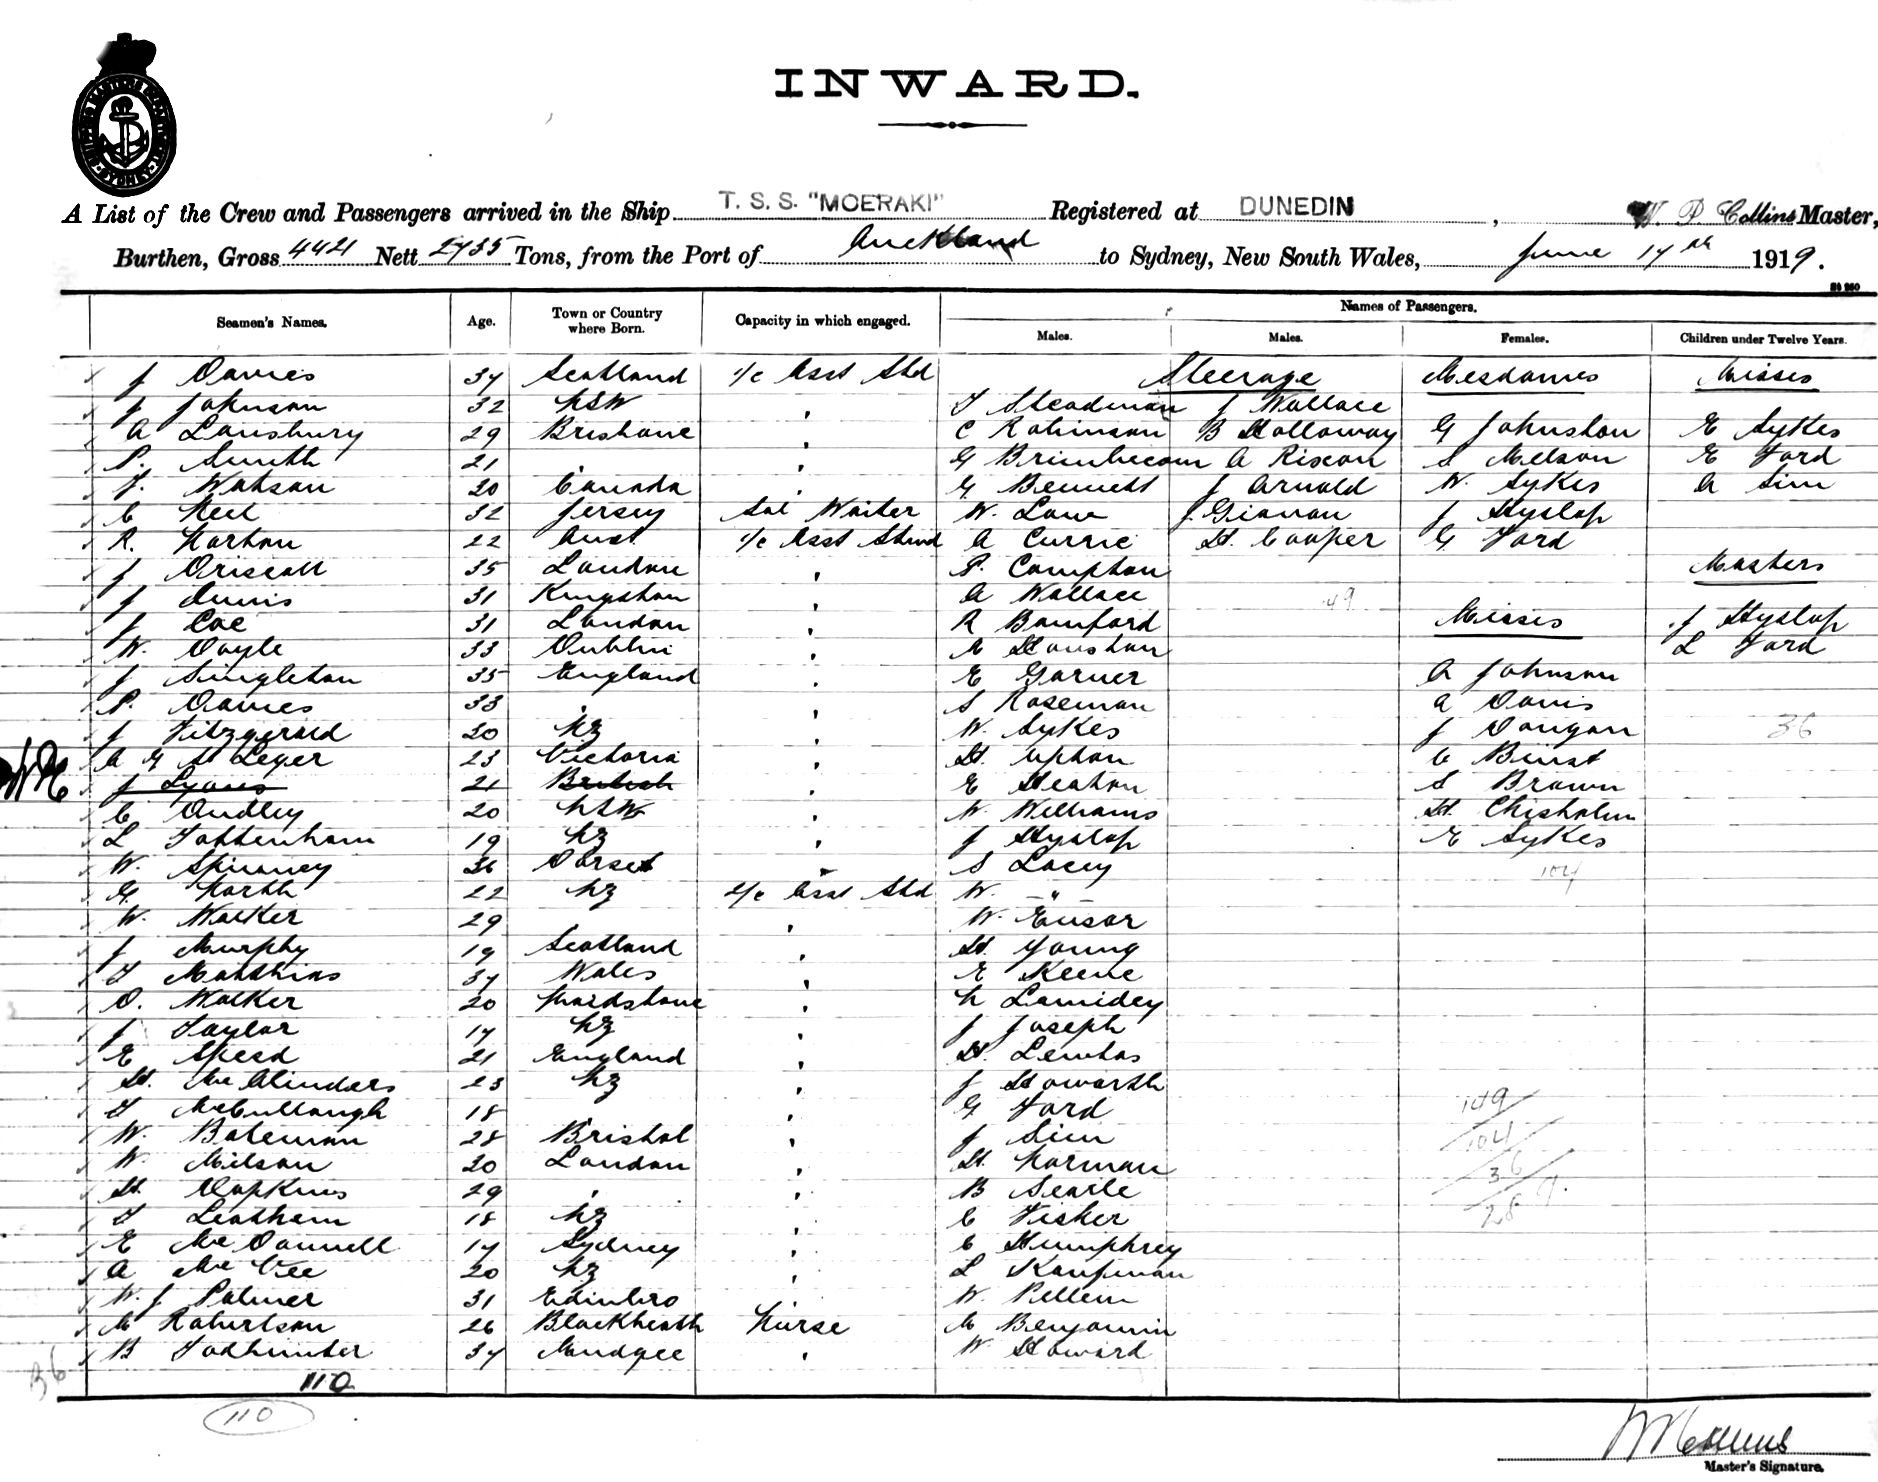 INWARD.
A List of the Crew and Passengers arrived in the Ship T. S. S. "MOERAKI" Registered at DUNEDIN, W. P Collins Master,
Burthen, Gross 4421 Nett 2735 Tons, from the Port of Auckland to Sydney, New South Wales, June 17th 1919.
Names of Passengers.
Seamen's Names. Age. Town or Country where Born. Capacity in which engaged. Males. Males. Females. Children under Twelve Years.
J Davies 37 Scotland 1/c Asst Std Steerage Mesdames Misses
J Johnson 32 NSW " T Steadman J Wallace
A Lansbury 29 Brisbane " C Robinson B Holloway G Johnston E Sykes
P. Smith 21 " G Brimbecom A Rixon S Melson E Ford
F. Watson 20 Canada " G Bennett J Arnold W. Sykes A Sim
C Neel 32 Jersey Sal Waiter W. Lane J. J Hyslop
R. Norton 22 Aust 1/c Asst Stwd A Currie H. Cooper G Ford
J Driscoll 35 London " P. Compton Masters
J Innis 31 Kingston " A Wallace 49
J Coe 31 London " R Bamford Misses J Hyslop
W. Doyle 33 Dublin " E Houston L Ford
J Singleton 35 England " E Garner A Johnson
P. Davies 33 " " S Roseman A Davis
J Fitzgerald 20 NZ " W. Sykes J Dongan 36
A G St Leger 23 Victoria " H. Upton C Binst
J Lyons 21 British " E Heaton S Brown
C Audley 20 NSW " W Williams H. Chisholm
L Tottenham 19 NZ " J Hyslop E Sykes
W. Spinney 36 Dorset " S Lacey 104
G. North 22 NZ 2/c Asst Std W. "
W. Walker 29 " W. Ensor
J Murphy 19 Scotland " H. Young
T Matthias 37 Wales " E Keene
O. Walker 20 Maidstone " N Lamidey
J Taylor 17 NZ " J Joseph
E Speed 21 England " H.
H. McClinders 23 NZ " J Howarth
T McCullough 18 " G Ford 149
W. Bateman 28 Bristol " J Sim 104
W. Milson 20 London " H. Norman 36
H. Hopkins 29 " " B Searle 289.
T Leatham 18 NZ " C Fisker
E McDonnell 17 Sydney " C Humphrey
A McVee 20 NZ " L Kaufman
W. J Palmer 31 Edinbro " W. Pellem
M Robertson 26 Blackheath Nurse M Benjamin
B Todhunter 37 Mudgee " W Howard
36 110
110
W P Collins
Master's Signature.